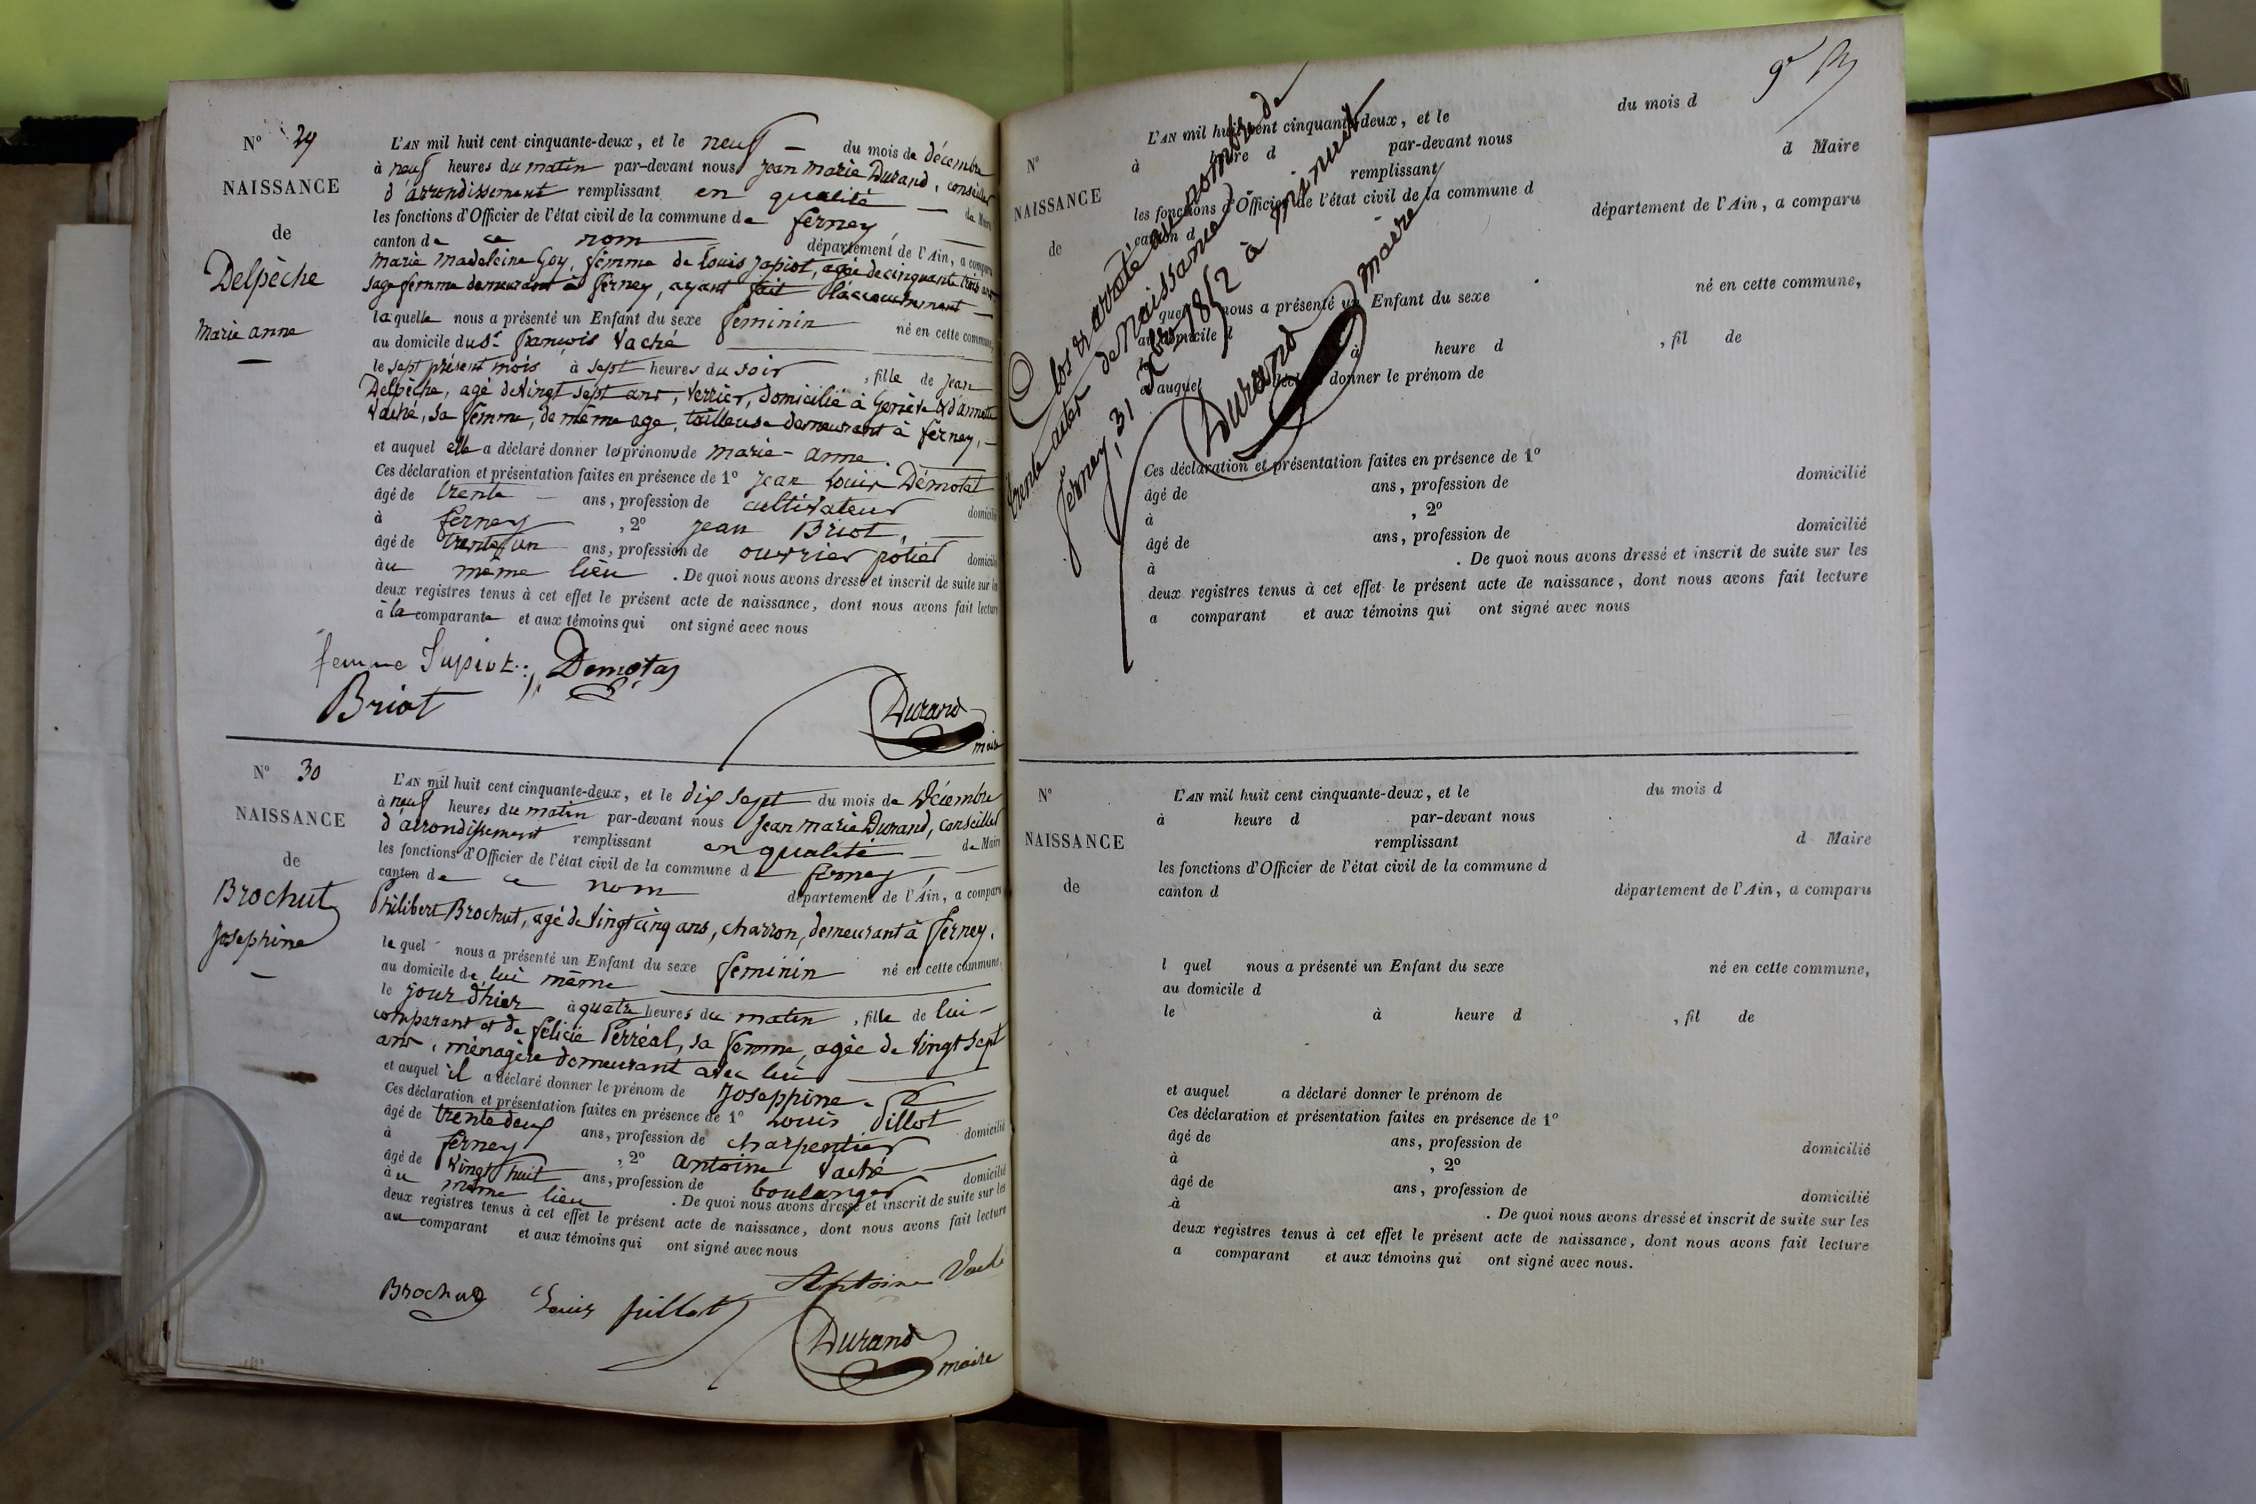 N° 29
NAISSANCE
de
Delpêche
marie anne
L'AN mil huit cent cinquante-deux, et le neuf du mois de décembre
à neuf heures du matin par-devant nous jean marie Durand, conseiller
d'arrondissement remplissant en qualité de Maire
les fonctions d'Officier de l'état civil de la commune de ferney
canton de ce nom département de l'Ain, a comparu
marie madeleine Goy, femme de Louis Japiot, agée de cinquante trois ans
sage femme demeurant à ferney, ayant fait l'accouchement
laquelle nous a présenté un Enfant du sexe feminin né en cette commune,
au domicile du sr. françois Vaché
le sept présent mois à sept heures du soir, fille de jean
Delpêche, agé de vingt sept ans, verrier, domicilié à Genève & d'annette
Vaché, sa femme, de même age, tailleuse demeurant à ferney,
et auquel elle a déclaré donner les prénoms de marie-anne
Ces déclaration et présentation faites en présence de 1° jean Louis Démotat
âgé de trente ans, profession de cultivateur domicilié
à ferney, 2° jean Briot,
âgé de trente un ans, profession de ouvrier potier domicilié
au même lieu. De quoi nous avons dressé et inscrit de suite sur les
deux registres tenus à cet effet le présent acte de naissance, dont nous avons fait lecture
à la comparante et aux témoins qui ont signé avec nous
femme Jupiot Demotas
Briot
Durand
maire
N° 30
NAISSANCE
de
Brochut
Josephine
L'AN mil huit cent cinquante-deux, et le dix sept du mois de Décembre
à neuf heures du matin par-devant nous jean marie Durand, conseiller
d'arrondissement remplissant en qualité de Maire
les fonctions d'Officier de l'état civil de la commune de ferney
canton de ce nom département de l'Ain, a comparu
Philibert Brochut, agé de vingt cinq ans, charron, demeurant à ferney,
lequel nous a présenté un Enfant du sexe feminin né en cette commune,
au domicile de lui même
le jour d'hier à quatre heures du matin, fille de lui
comparant et de félicie Perréal, sa femme, agée de vingt sept
ans, ménagère demeurant avec lui
et auquel il a déclaré donner le prénom de Josephine
Ces déclaration et présentation faites en présence de 1° Louis Jillot
âgé de trente deux ans, profession de charpentier domicilié
à ferney, 2° antoine Vaché
âgé de vingt huit ans, profession de boulanger domicilié
au même lieu. De quoi nous avons dressé et inscrit de suite sur les
deux registres tenus à cet effet le présent acte de naissance, dont nous avons fait lecture
au comparant et aux témoins qui ont signé avec nous
Brochud Louis Jullot Antoine Vaché
Durand
maire
N°
NAISSANCE
de
L'AN mil huit cent cinquante-deux, et le du mois d
à heure d par-devant nous
remplissant d Maire
les fonctions d'Officier de l'état civil de la commune d
canton d département de l'Ain, a comparu
quel nous a présenté un Enfant du sexe né en cette commune,
au domicile d
à heure d , fil de
et auquel déclaré donner le prénom de
Ces déclaration et présentation faites en présence de 1°
âgé de ans, profession de domicilié
à , 2°
âgé de ans, profession de domicilié
à . De quoi nous avons dressé et inscrit de suite sur les
deux registres tenus à cet effet le présent acte de naissance, dont nous avons fait lecture
a comparant et aux témoins qui ont signé avec nous
Clos et arrêté au nombre de
trente actes de naissance
ferney, 31 Xbre 1852 à minuit
Durand maire
N°
NAISSANCE
de
L'AN mil huit cent cinquante-deux, et le du mois d
à heure d par-devant nous
remplissant d Maire
les fonctions d'Officier de l'état civil de la commune d
canton d département de l'Ain, a comparu
l quel nous a présenté un Enfant du sexe né en cette commune,
au domicile d
le à heure d , fil de
et auquel a déclaré donner le prénom de
Ces déclaration et présentation faites en présence de 1°
âgé de ans, profession de domicilié
à , 2°
âgé de ans, profession de domicilié
à . De quoi nous avons dressé et inscrit de suite sur les
deux registres tenus à cet effet le présent acte de naissance, dont nous avons fait lecture
a comparant et aux témoins qui ont signé avec nous.